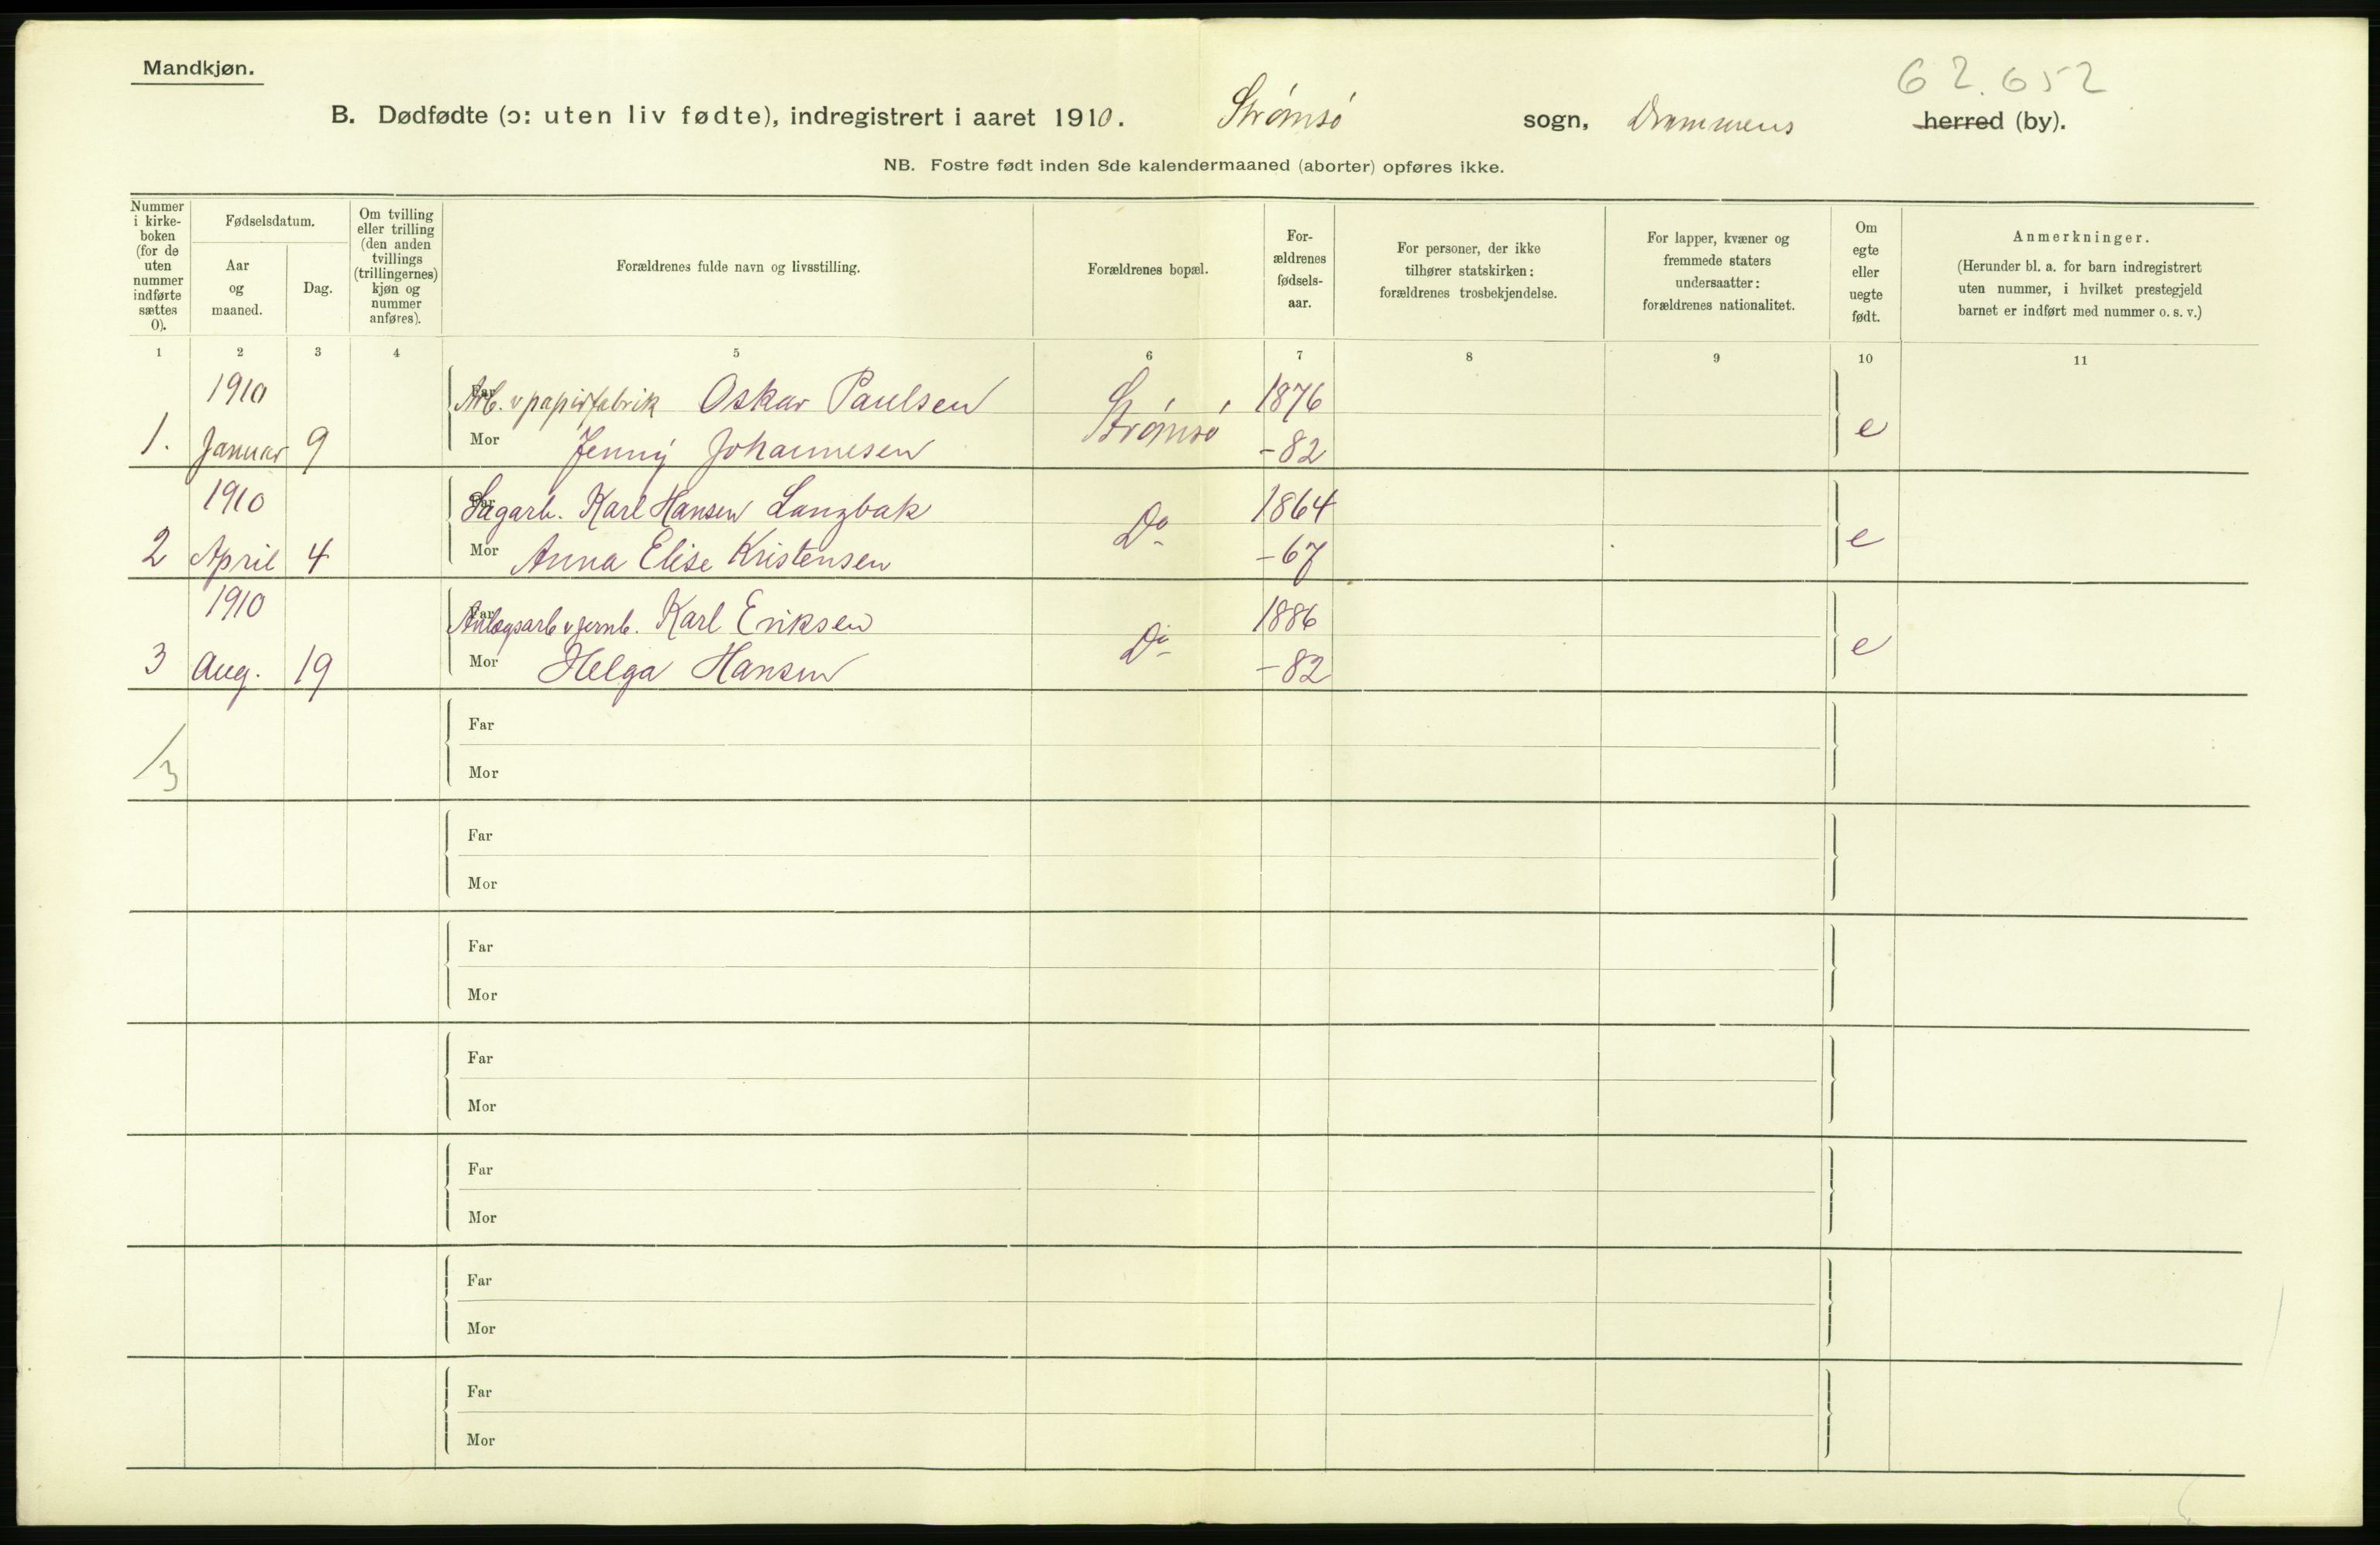 Mandkjøn.
62.652
B. Dødfødte (ɔ: uten liv fødte), indregistrert i aaret 1910. Strømsø sogn, Drammens herred (by).
NB. Fostre født inden 8de kalendermaaned (aborter) opføres ikke.
Nummer i kirke-boken (for de uten nummer indførte sættes 0).
Fødselsdatum.
Aar og maaned.
Dag.
Om tvilling eller trilling (den anden tvillings (trillingernes) kjøn og nummer anføres).
Forældrenes fulde navn og livsstilling.
Forældrenes bopæl.
For-ældrenes fødsels-aar.
For personer, der ikke tilhører statskirken: forældrenes trosbekjendelse.
For lapper, kvæner og fremmede staters undersaatter: forældrenes nationalitet.
Om egte eller uegte født.
Anmerkninger.
(Herunder bl. a. for barn indregistrert uten nummer, i hvilket prestegjeld barnet er indført med nummer o. s. v.)
1 2 3 4 5 6 7 8 9 10 11
1910 Far Arb. v papirfabrik Oskar Paulsen Strømsø 1876
1. Januar 9 Mor Jenny Johannesen -82 e
1910 Far Sagarb. Karl Hansen Langbak Do 1864
2 April 4 Mor Anna Elise Kristensen -67 e
1910 Far Anlægsarb v jernb. Karl Eriksen Do 1886
3 Aug. 19 Mor Helga Hansen -82 e
Far
3
Mor
Far
Mor
Far
Mor
Far
Mor
Far
Mor
Far
Mor
Far
Mor